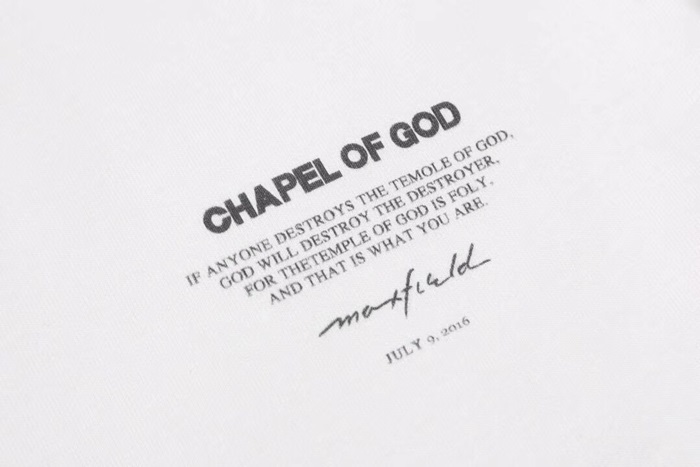 CHAPEL OF GOD
IF ANYONE DESTROYS THE TEMOLE OF GOD,
GOD WILL DESTROY THE DESTROYER.
FOR THETEMPLE OF GOD IS FOLY.
AND THAT IS WHAT YOU ARE.
maxfield
JULY 9, 2016